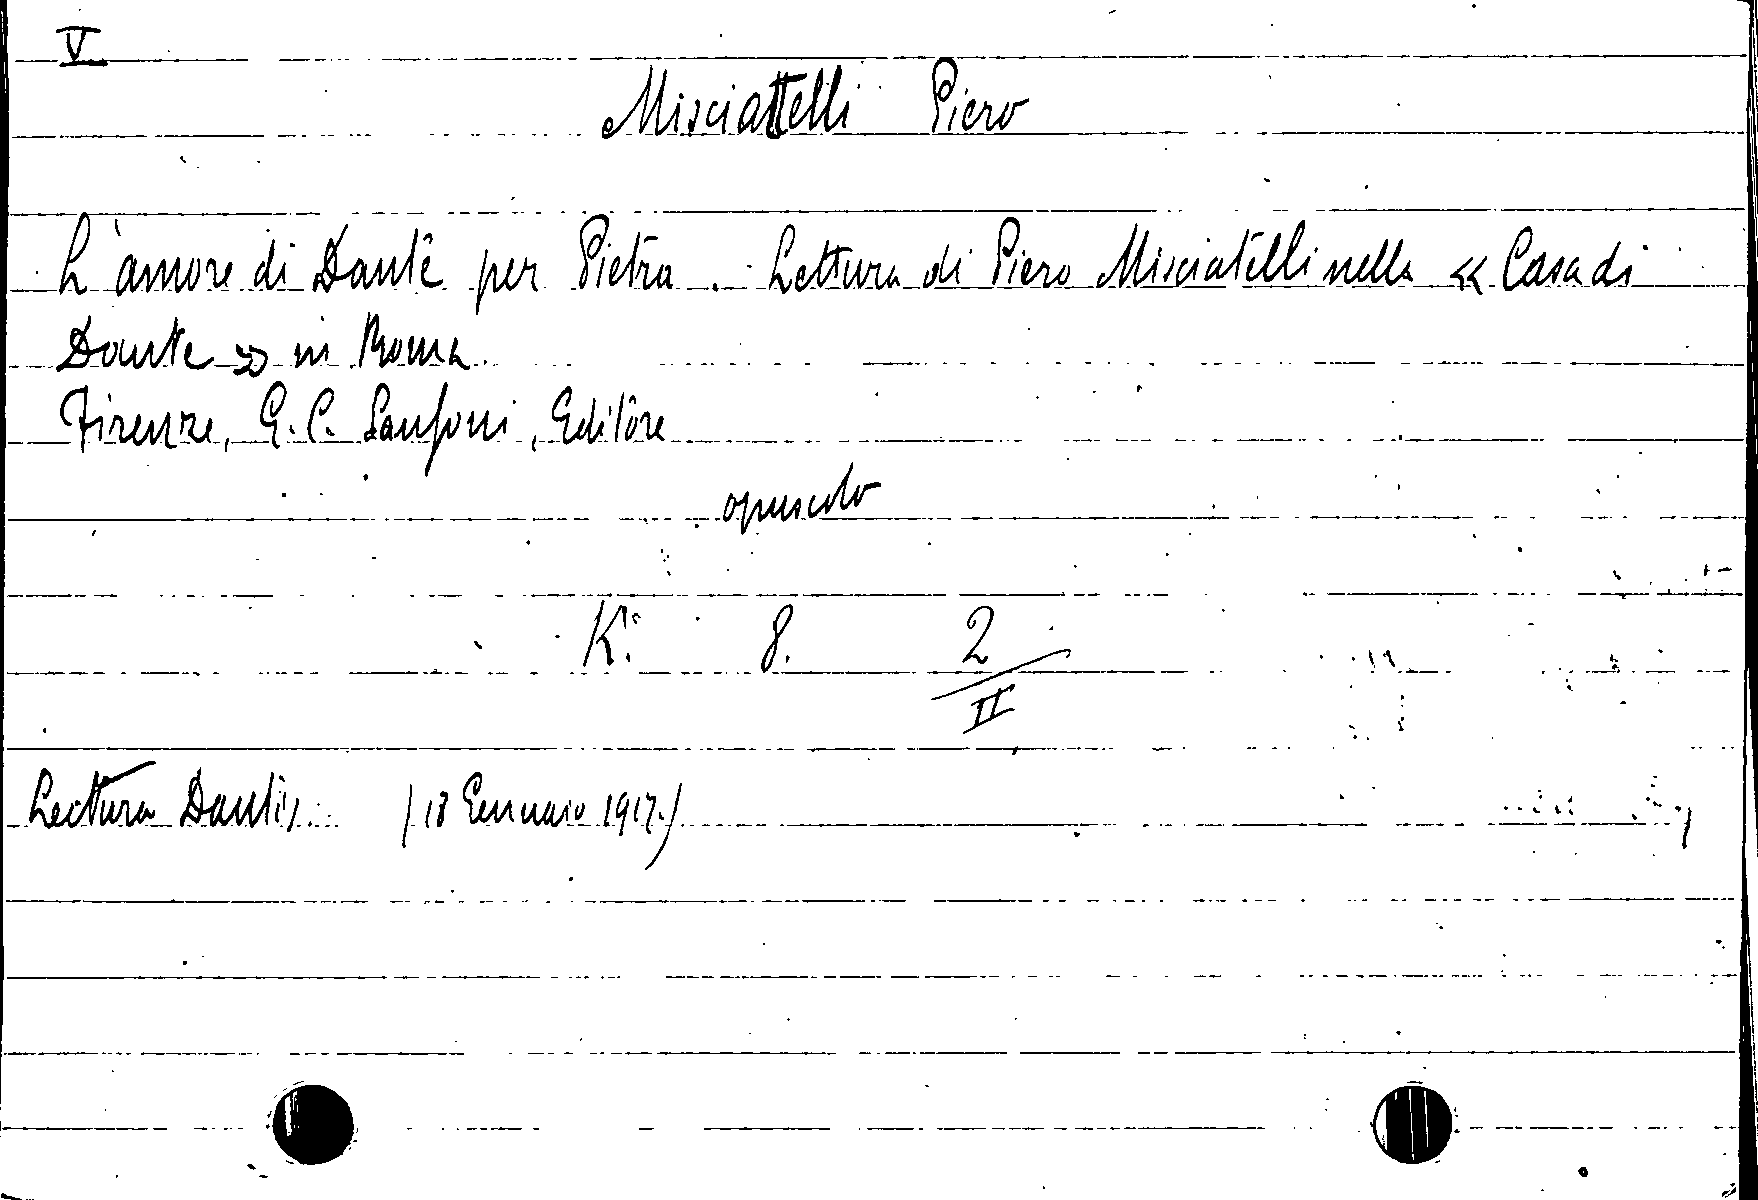 V
Misciattelli Piero
L'amore di Dante per Pietra. Lettura di Piero Misciatelli nella « Casa di
Dante » in Roma.
Firenze, G. C. Sansoni, Editore
opuscolo
K. 8. 2
II
Lectura Dantis. (18 Gennaio 1917.)